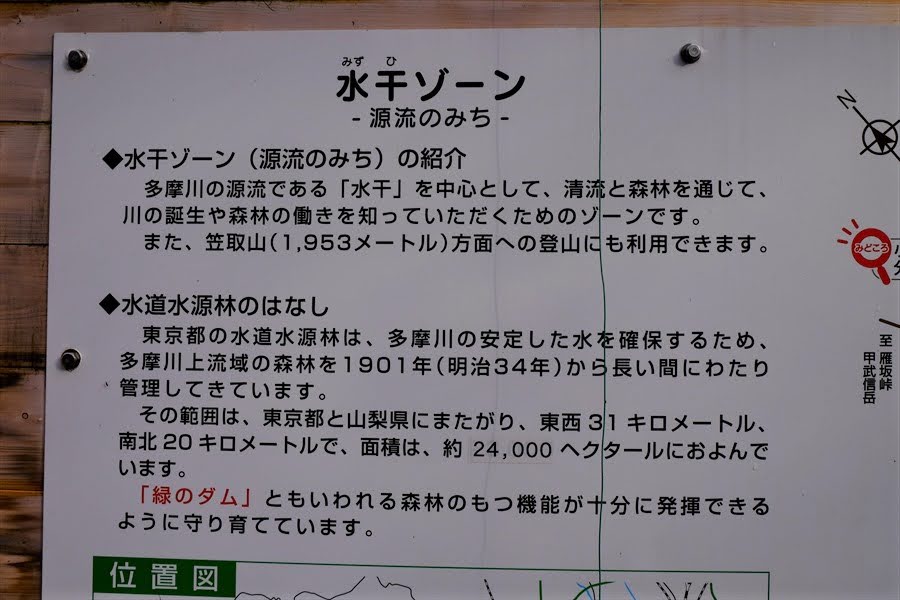 みず ひ
水干ゾーン
- 源流のみち -
◆水干ゾーン（源流のみち）の紹介
多摩川の源流である「水干」を中心として、清流と森林を通じて、
川の誕生や森林の働きを知っていただくためのゾーンです。
また、笠取山(1,953メートル)方面への登山にも利用できます。
◆水道水源林のはなし
東京都の水道水源林は、多摩川の安定した水を確保するため、
多摩川上流域の森林を1901年(明治34年)から長い間にわたり
管理してきています。
その範囲は、東京都と山梨県にまたがり、東西 31 キロメートル、
南北 20 キロメートルで、面積は、約 24,000 ヘクタールにおよんで
います。
「緑のダム」ともいわれる森林のもつ機能が十分に発揮できる
ように守り育てています。
位置図
N
みどころ
至 雁坂峠
甲武信岳